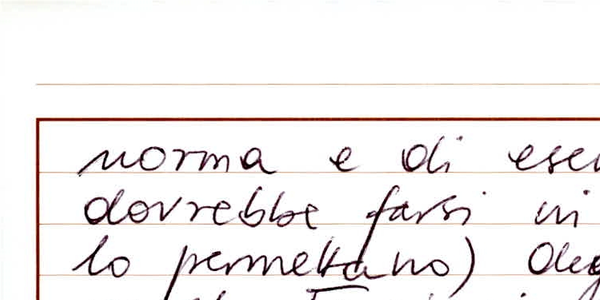 norma e di esem
dovrebbe farsi in
lo permettano) deg